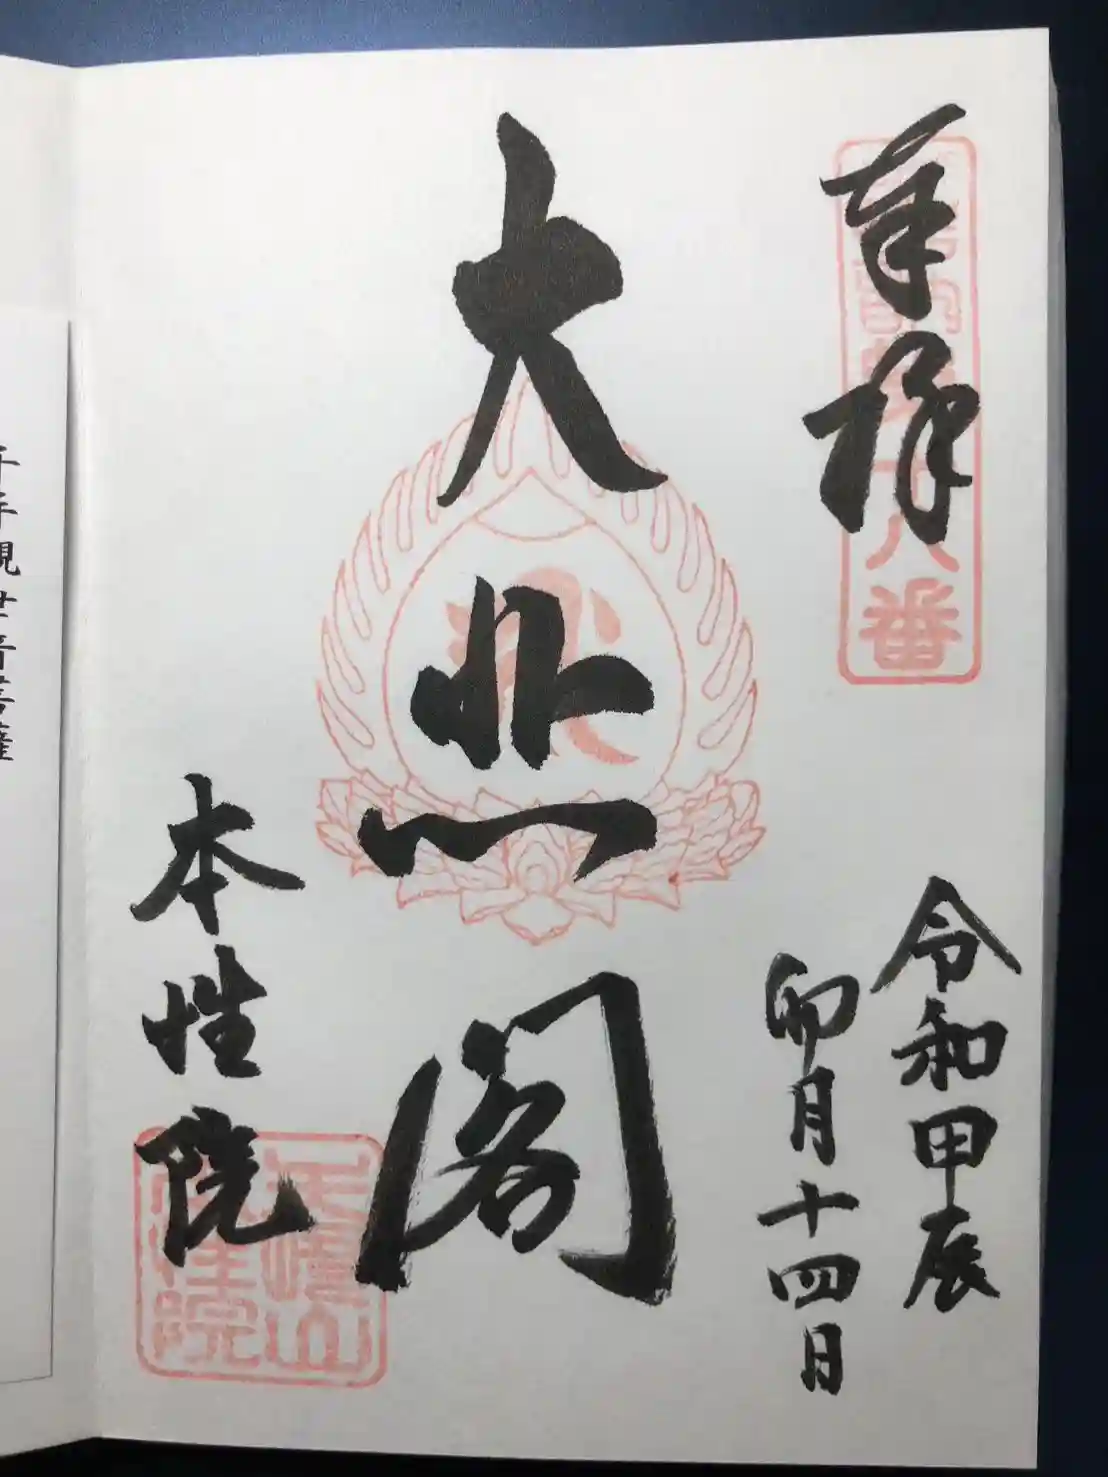 奉拝
十八番
令和甲辰
卯月十四日
大悲閣
本性院
千手観世音菩薩